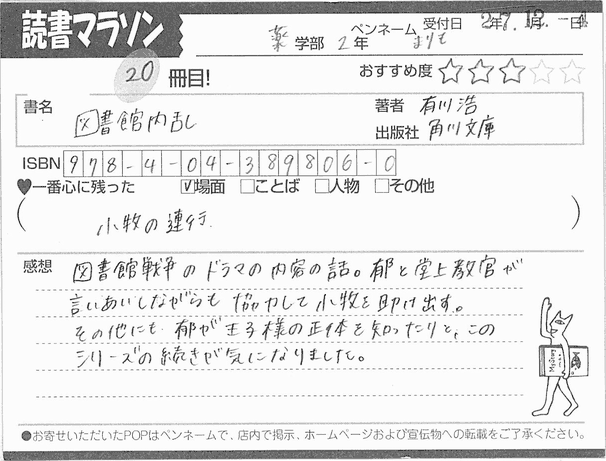 読書マラソン
薬 学部 2年 ペンネーム まりも 受付日 27.12.-4
20 冊目!
おすすめ度 ☆☆☆☆☆
書名 図書館内乱
著者 有川浩
出版社 角川文庫
ISBN 978-4-04-389806-0
♥一番心に残った ☑場面 □ことば □人物 □その他
( 小牧の連行. )
感想 図書館戦争のドラマの内容の話。郁と堂上教官が
言いあいしながらも協力して小牧を助け出す。
その他にも郁が王子様の正体を知ったりと、この
シリーズの続きが気になりました。
●お寄せいただいたPOPはペンネームで、店内で掲示、ホームページおよび宣伝物への転載をご了承ください。